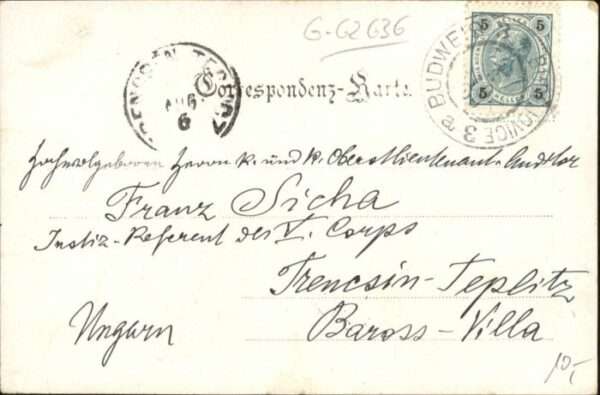 G-G2636
5 5
5 HELLER 5
BUDWEIS BUDĚJOVICE 3
TRENCSÉN TEPLICZ
AUG. 6
Correspondenz-Karte.
Hochwolgeboren Herrn k. und k. Oberstlieutenant-Auditor
Franz Sicha
Instiz-Referent des V. Corps
Trencsin-Teplitz
Ungarn Baross-Villa
10,-